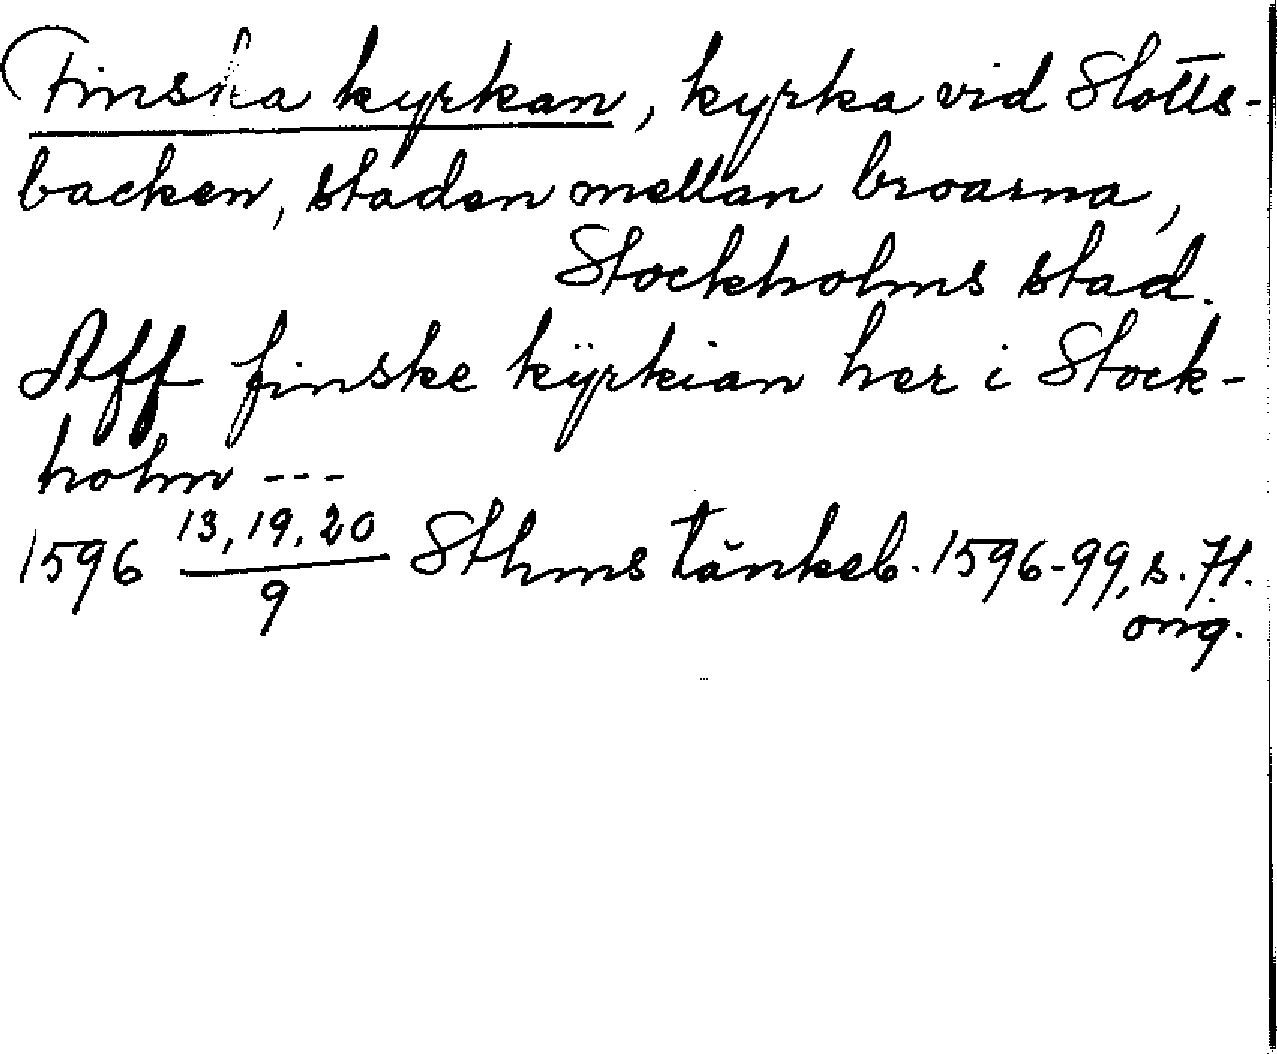 Finska kyrkan, kyrka vid Slotts-
backen, staden mellan broarna,
Stockholms stad.
Aff finske kÿrkian her i Stock-
holm ---
1596 13, 19, 20/9 Sthms tänkeb. 1596-99, s. 71.
orig.